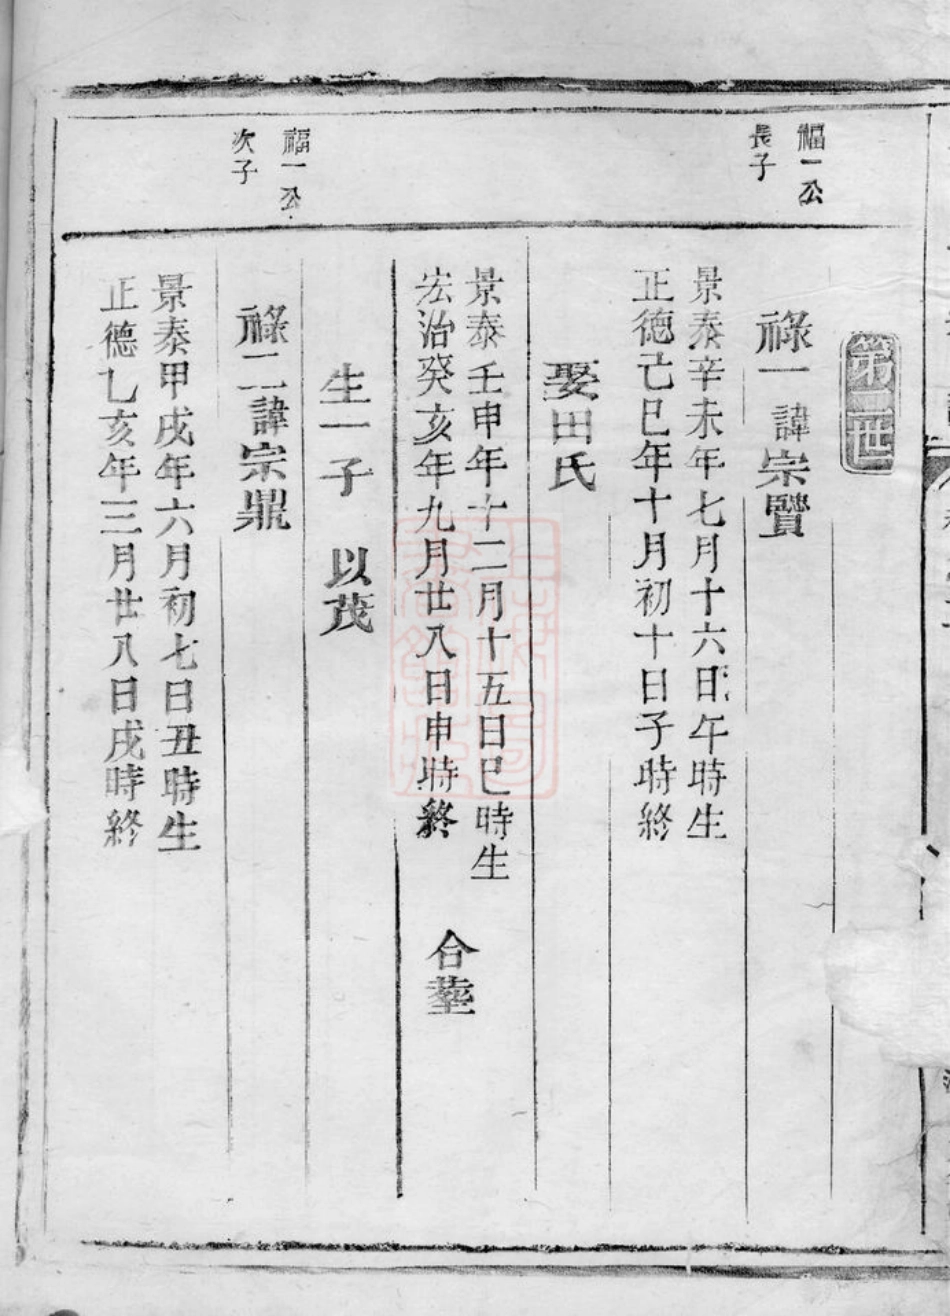 第二世
福一公
長子
祿一諱宗賢
景泰辛未年七月十六日午時生
正德己巳年十月初十日子時終
娶田氏
景泰壬申年十二月十五日巳時生
宏治癸亥年九月廿八日申時終
合塟
生一子 以茂
福一公
次子
祿二諱宗鼎
景泰甲戌年六月初七日丑時生
正德乙亥年三月廿八日戌時終